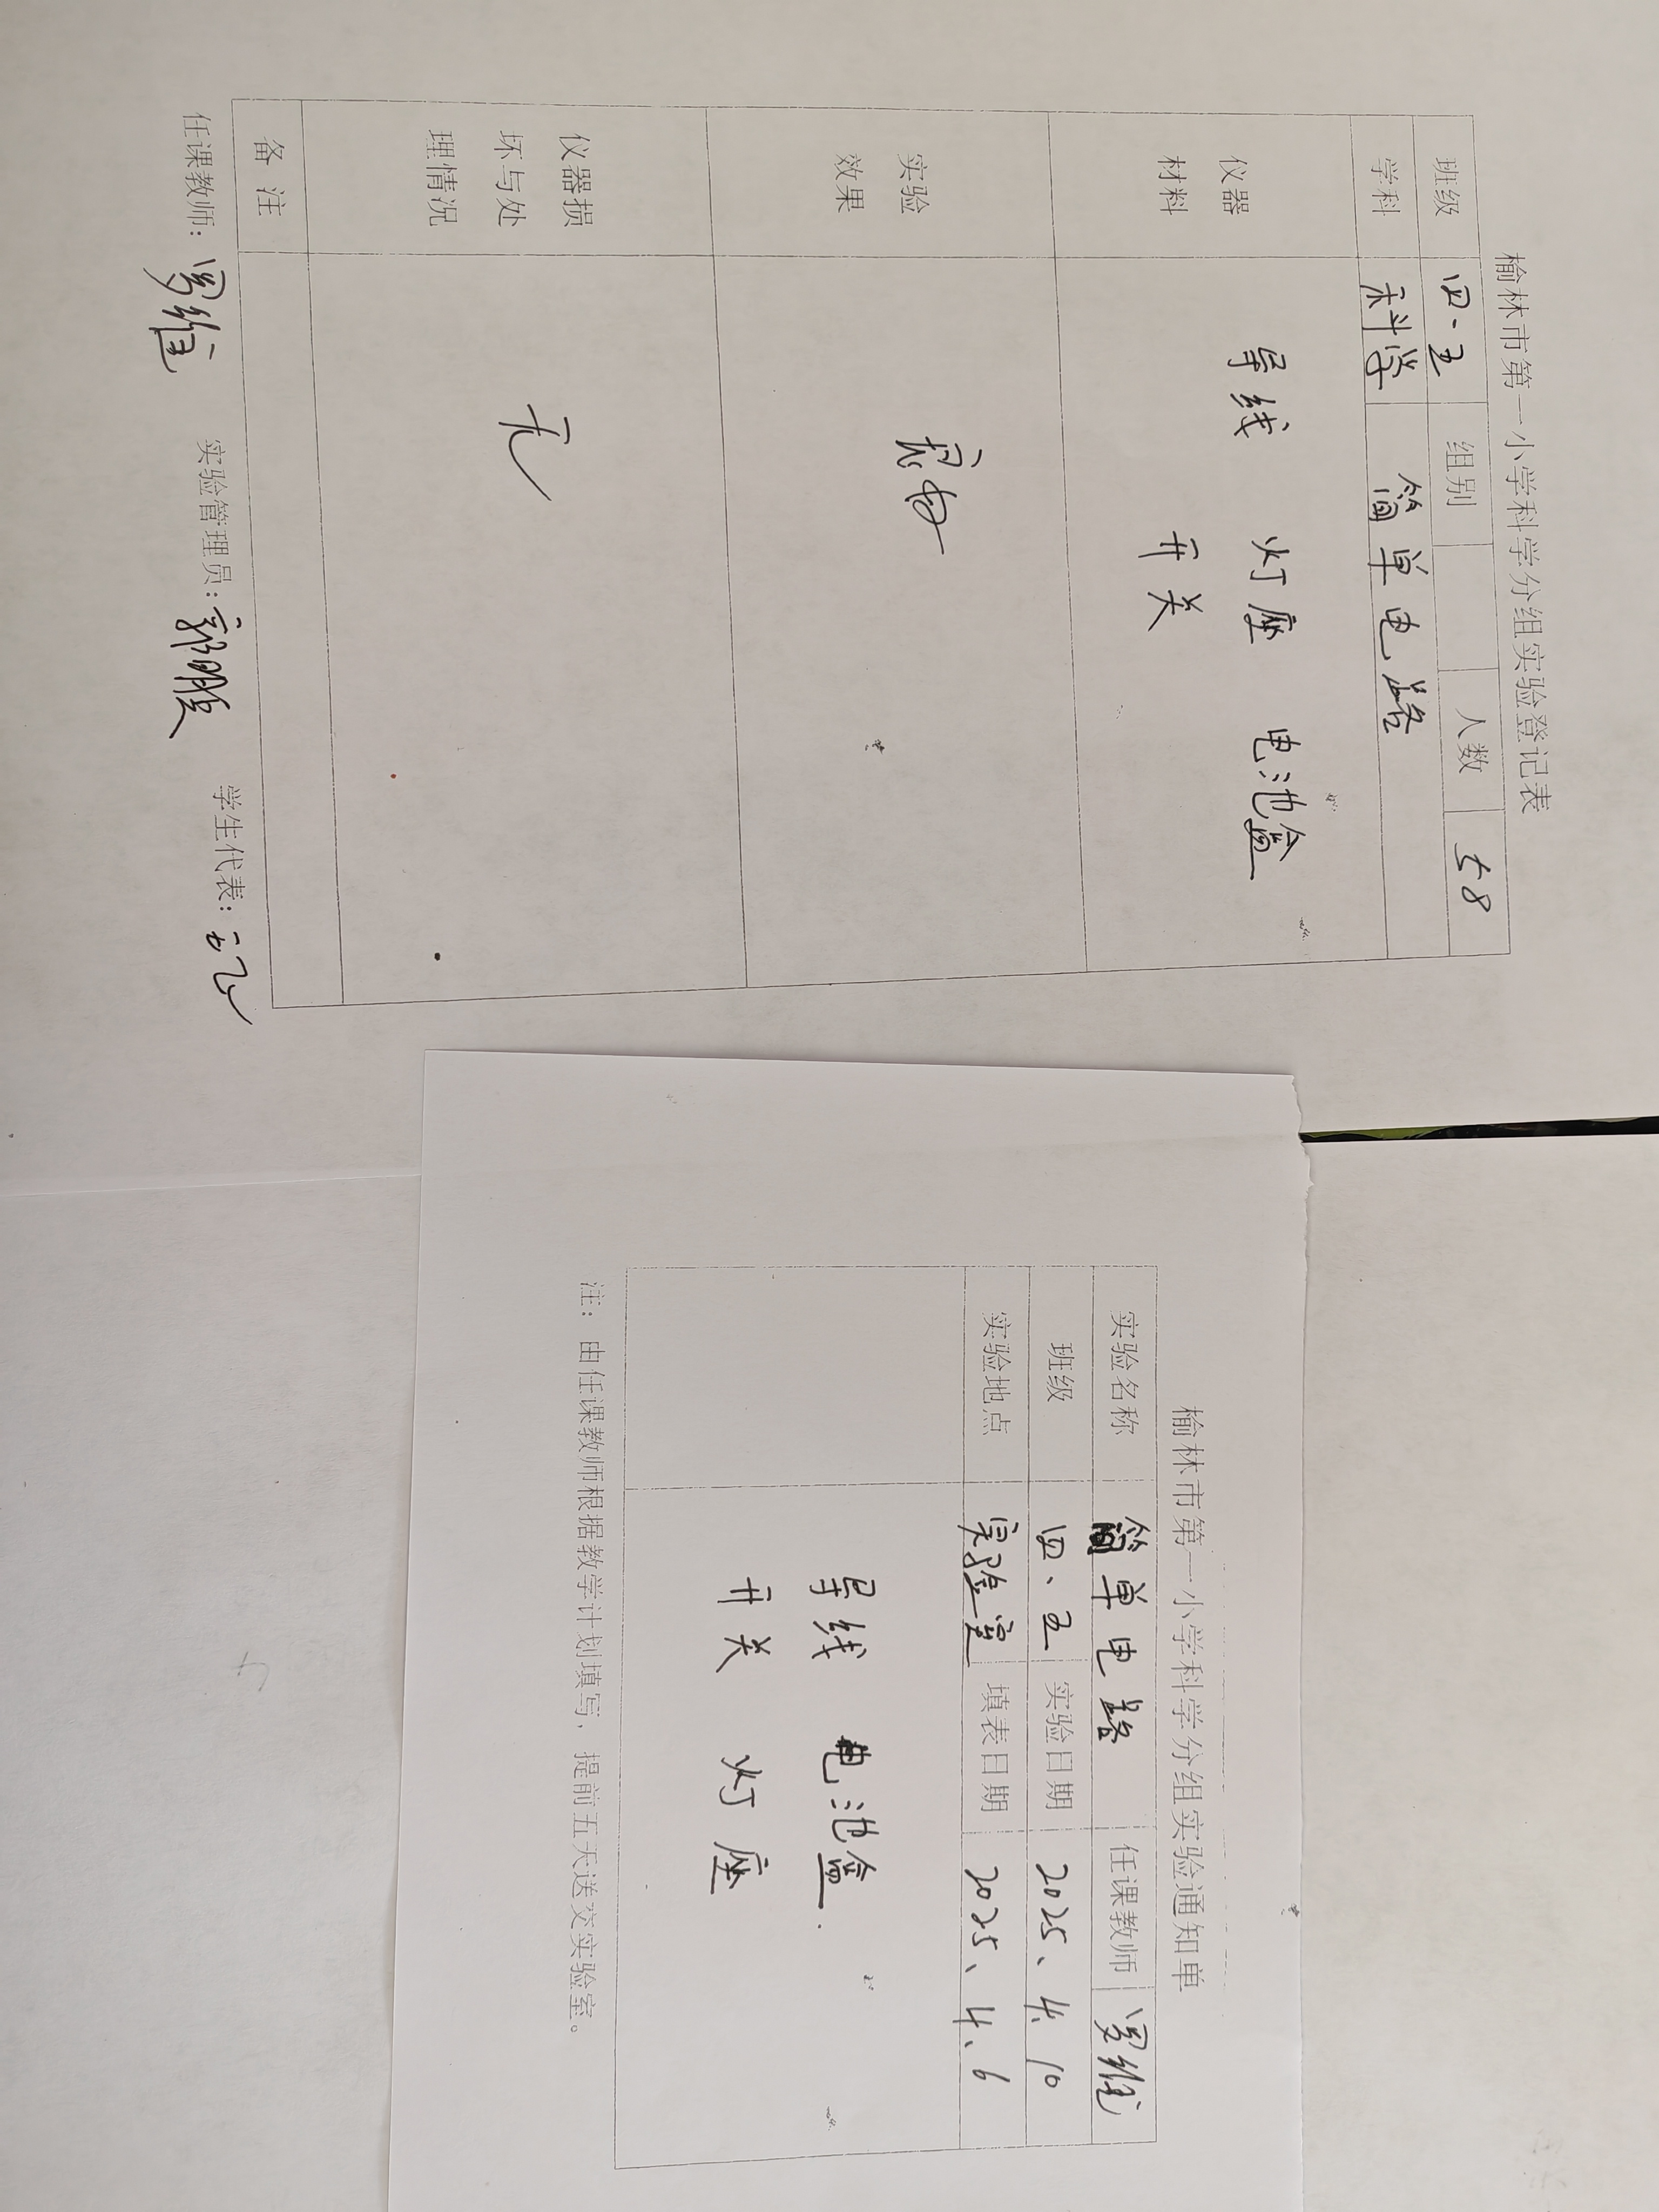 榆林市第一小学科学分组实验登记表
班级 四、五 组别 人数 58
学科 科学 简单电路
仪器材料 导线 灯座 电池盒
开关
实验效果 良好
仪器损坏与处理情况 无
备注
任课教师: 实验管理员: 学生代表:
榆林市第一小学科学分组实验通知单
实验名称 简单电路 任课教师
班级 四、五 实验日期 2025、4、10
实验地点 实验室 填表日期 2025、4、6
导线 电池盒.
开关 灯座
注: 由任课教师根据教学计划填写, 提前五天送交实验室。